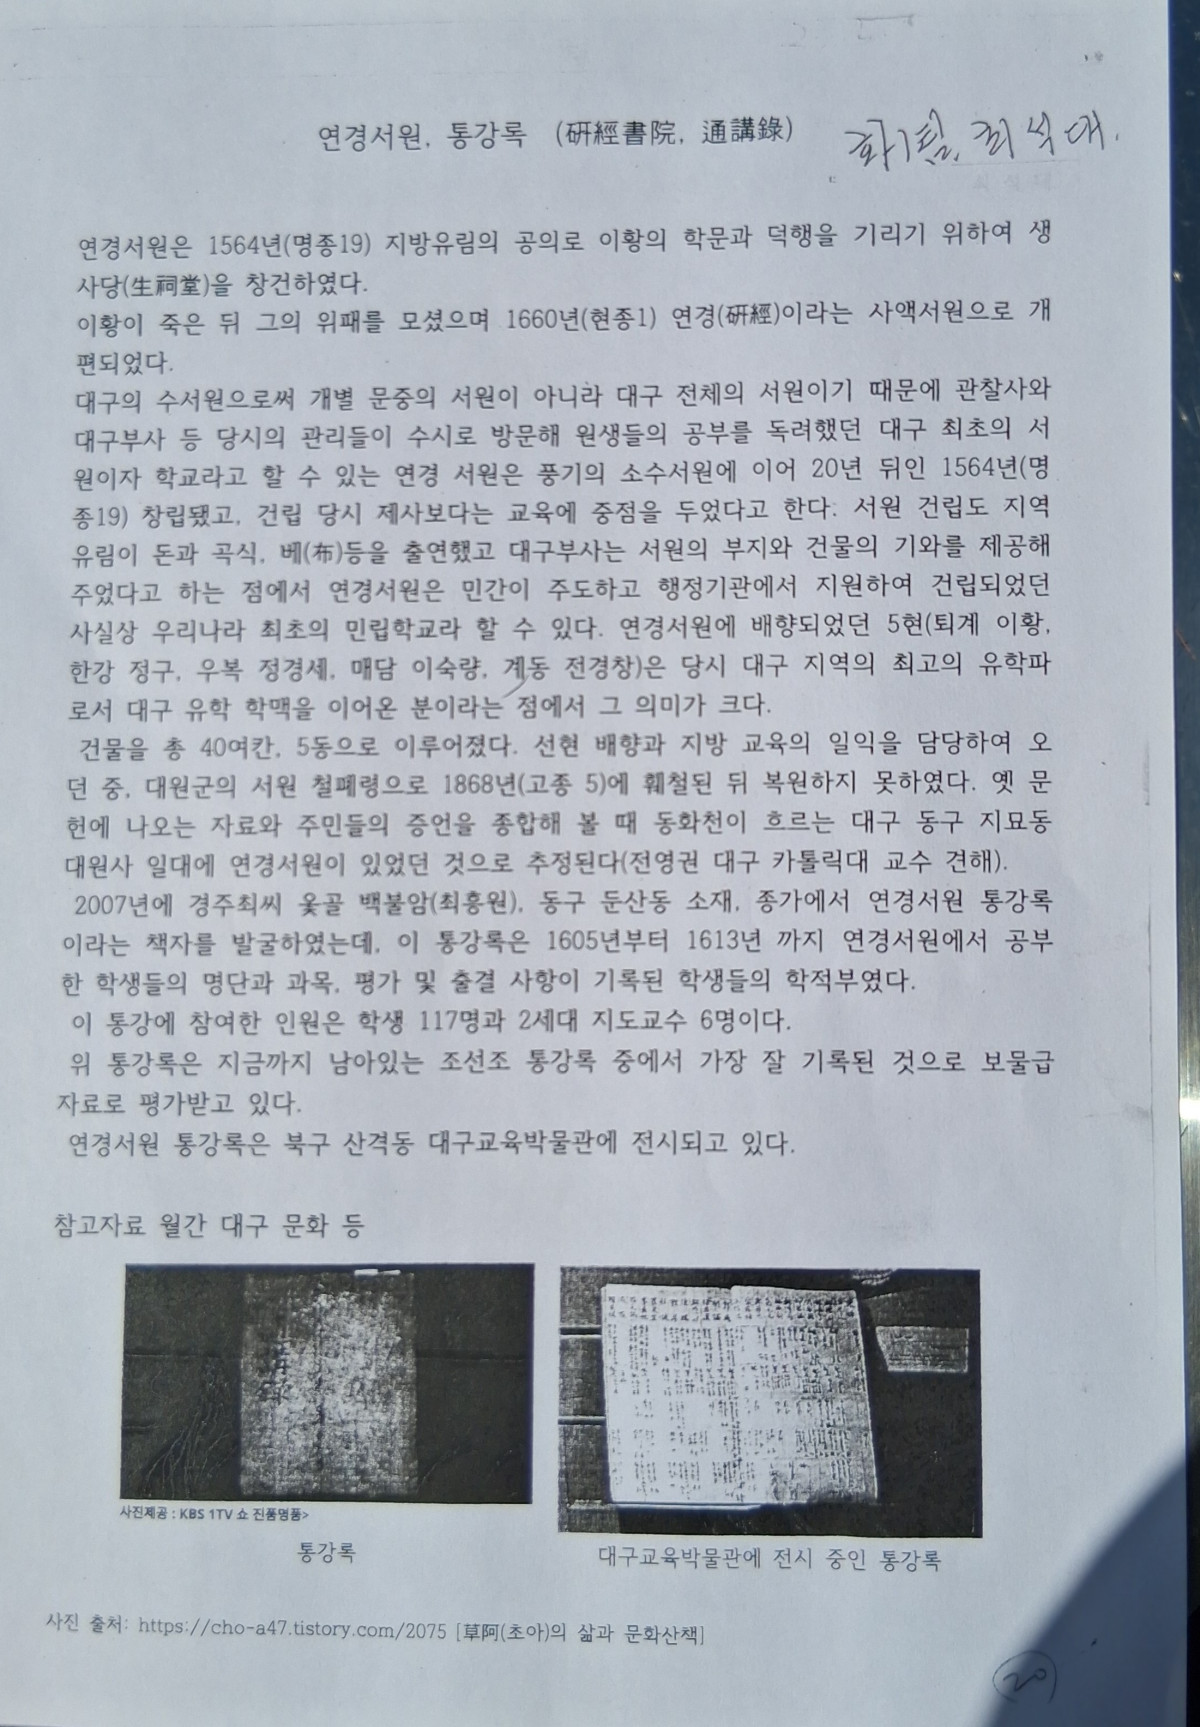 연경서원, 통강록 (硏經書院, 通講錄)
최석대.
연경서원은 1564년(명종19) 지방유림의 공의로 이황의 학문과 덕행을 기리기 위하여 생
사당(生祠堂)을 창건하였다.
이황이 죽은 뒤 그의 위패를 모셨으며 1660년(현종1) 연경(硏經)이라는 사액서원으로 개
편되었다.
대구의 수서원으로써 개별 문중의 서원이 아니라 대구 전체의 서원이기 때문에 관찰사와
대구부사 등 당시의 관리들이 수시로 방문해 원생들의 공부를 독려했던 대구 최초의 서
원이자 학교라고 할 수 있는 연경 서원은 풍기의 소수서원에 이어 20년 뒤인 1564년(명
종19) 창립됐고, 건립 당시 제사보다는 교육에 중점을 두었다고 한다. 서원 건립도 지역
유림이 돈과 곡식, 베(布)등을 출연했고 대구부사는 서원의 부지와 건물의 기와를 제공해
주었다고 하는 점에서 연경서원은 민간이 주도하고 행정기관에서 지원하여 건립되었던
사실상 우리나라 최초의 민립학교라 할 수 있다. 연경서원에 배향되었던 5현(퇴계 이황,
한강 정구, 우복 정경세, 매담 이숙량, 계동 전경창)은 당시 대구 지역의 최고의 유학파
로서 대구 유학 학맥을 이어온 분이라는 점에서 그 의미가 크다.
건물을 총 40여칸, 5동으로 이루어졌다. 선현 배향과 지방 교육의 일익을 담당하여 오
던 중, 대원군의 서원 철폐령으로 1868년(고종 5)에 훼철된 뒤 복원하지 못하였다. 옛 문
헌에 나오는 자료와 주민들의 증언을 종합해 볼 때 동화천이 흐르는 대구 동구 지묘동
대원사 일대에 연경서원이 있었던 것으로 추정된다(전영권 대구 카톨릭대 교수 견해).
2007년에 경주최씨 옻골 백불암(최흥원), 동구 둔산동 소재, 종가에서 연경서원 통강록
이라는 책자를 발굴하였는데, 이 통강록은 1605년부터 1613년 까지 연경서원에서 공부
한 학생들의 명단과 과목, 평가 및 출결 사항이 기록된 학생들의 학적부였다.
이 통강에 참여한 인원은 학생 117명과 2세대 지도교수 6명이다.
위 통강록은 지금까지 남아있는 조선조 통강록 중에서 가장 잘 기록된 것으로 보물급
자료로 평가받고 있다.
연경서원 통강록은 북구 산격동 대구교육박물관에 전시되고 있다.
참고자료 월간 대구 문화 등
사진제공 : KBS 1TV 쇼 진품명품>
통강록
대구교육박물관에 전시 중인 통강록
사진 출처: https://cho-a47.tistory.com/2075 [草阿(초아)의 삶과 문화산책]
20